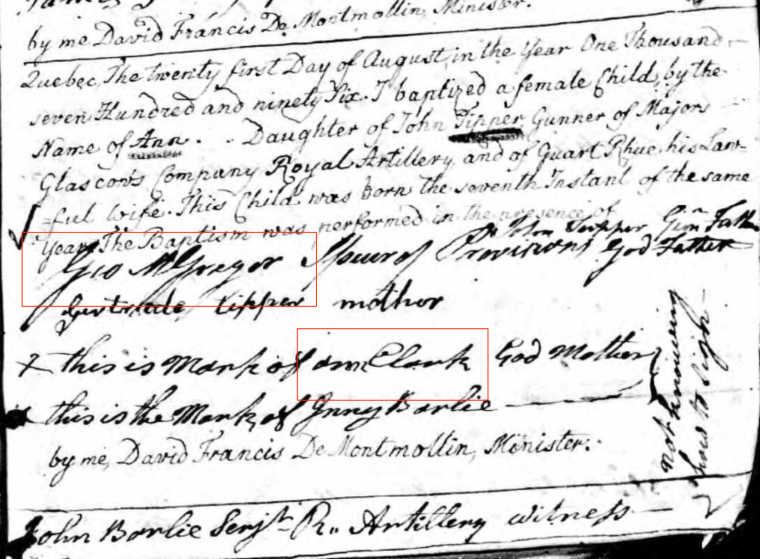 by me David Francis De Montmollin, Minister.
Quebec, The twenty first Day of August, in the Year One Thousand
seven Hundred and ninety Six. I baptized a female Child, by the
Name of Ann. . Daughter of John Tipper Gunner of Majors
Glascon's Company Royal Artillery and of Guart Phue, his Law-
-ful wife. This Child was born the seventh Instant of the same
Year. The Baptism was performed in the presence of
John Tipper Father
Geo McGregor Issuer of Provisions God Father
Gertrude tipper mother
X this is Mark of ann Clark God Mother
X this is the Mark of Jnny Barlie
not knowing
how to sign
by me, David Francis De Montmollin, Minister.
John Barlie Serjt. R. Artillery witness